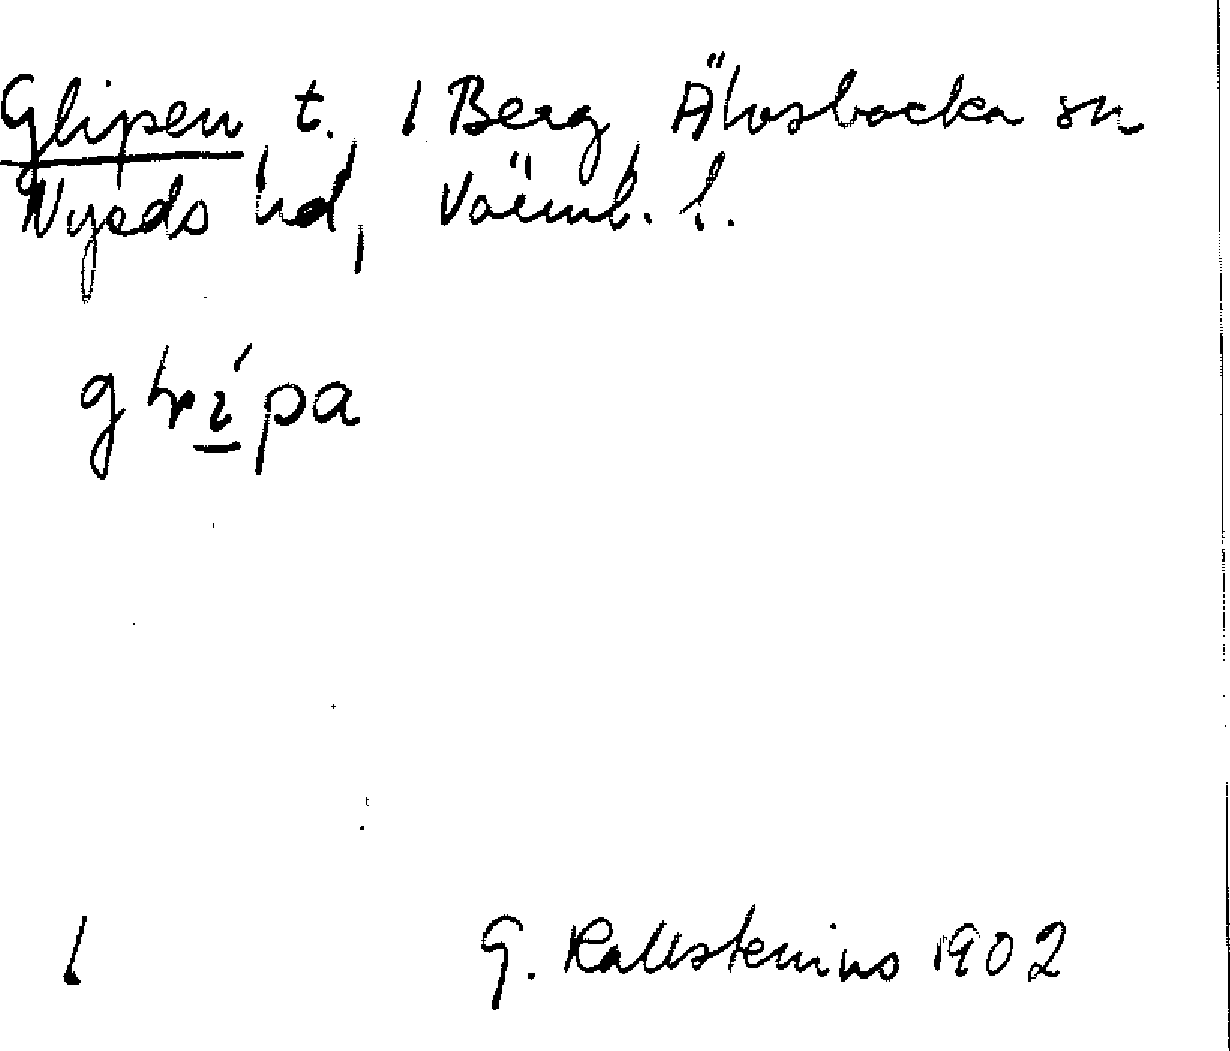 Glipen t. l Berg Älvsbacka sn
Nyeds hd, Värml. l.
glìpa
l G. Kallstenius 1902